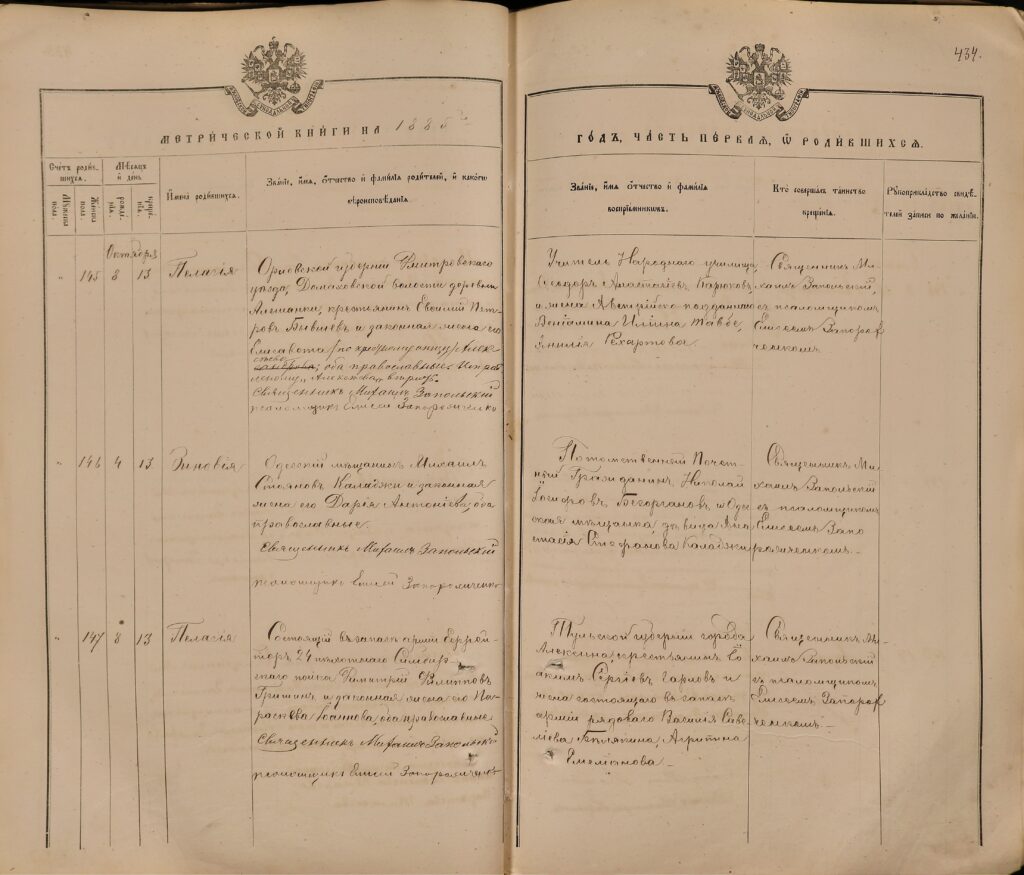 434.
МЕТРИЧЕСКОЙ КНИГИ НА 1885
ГОДЪ, ЧАСТЬ ПЕРВАЯ, Ѡ РОДИВШИХСЯ.
Счетъ родившихся.
Мужеска пола.
Женска пола.
Мѣсяцъ и день.
рожденія.
крещенія.
Имена родившихся.
Званіе, имя, отчество и фамилія родителей, и какого
вѣроисповѣданія.
Званіе, имя отчество и фамилія
воспріемниковъ.
Кто совершалъ таинство
крещенія.
Рукоприкладство свидѣтелей записи по желанію.
Октября
„ 145 8 13 Пелагія
Орловской губерніи Дмитровскаго
уѣзда, Домаховской волости деревни
Алешанки, крестьянинъ Евѳимій Петровъ
и законная жена его
Елисавета
оба православные.
Священникъ Михаилъ Запольскій
псаломщикъ Елисей Запорожченко
Учитель Народнаго училища,
Ѳеодоръ Аѳанасіевъ Карюковъ,
и жена Австрійско-подданнаго
Веніамина Ильина
Эмилія
Священникъ Михаилъ Запольскій,
съ псаломщикомъ
Елисеемъ Запорожченкомъ
„ 146 4 13 Зиновія
Одесскій мѣщанинъ Михаилъ
Стояновъ Каладжи и законная
жена его Дарія Антоніева, оба
православные.
Священникъ Михаилъ Запольскій
псаломщикъ Елисей Запорожченко
Потомственный Почетный
Гражданинъ Николай
и Одесская
мѣщанка, дѣвица Анастасія
Стефанова Каладжи
Священникъ Михаилъ Запольскій
съ псаломщикомъ
Елисеемъ Запорожченкомъ.
„ 147 8 13 Пелагія
Состоящій въ запасѣ арміи Ефрейторъ
24 пѣхотнаго Симбирскаго
полка Димитрій Филипповъ
Гришинъ и законная жена его Параскева
Іоаннова, оба православные
Священникъ Михаилъ Запольскій
псаломщикъ Елисей Запорожченко
Тульской губерніи города
Алексина, крестьянинъ Іоакимъ
Сергіевъ Гарловъ и
жена состоящаго въ запасѣ
арміи рядоваго Василія Савеліева
Белякина, Агрипина
Емельянова.
Священникъ Михаилъ Запольскій
съ псаломщикомъ
Елисеемъ Запорожченкомъ.